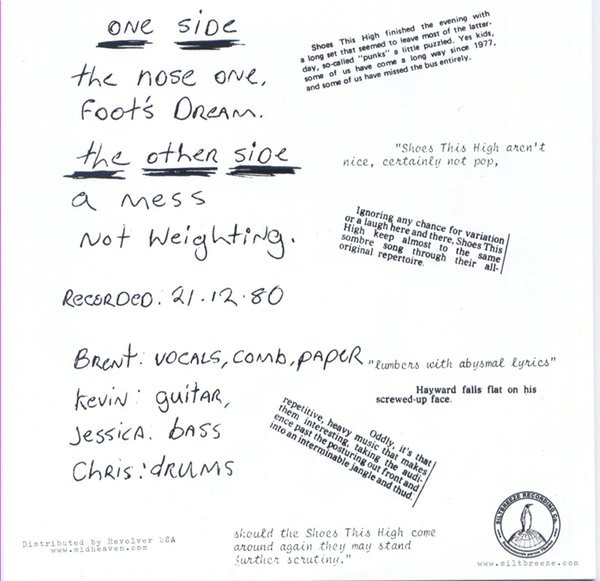 ONE SIDE
the nose one,
Foot's Dream.
the other side
a mess
Not Weighting.
RECORDED: 21.12.80
Brent: VOCALS, COMB, PAPER
Kevin: guitar,
Jessica. bass
Chris: drums
Shoes This High finished the evening with
a long set that seemed to leave most of the latter-
day, so-called "punks" a little puzzled. Yes kids,
some of us have come a long way since 1977,
and some of us have missed the bus entirely.
"Shoes This High aren't
nice, certainly not pop,
Ignoring any chance for variation
or a laugh here and there, Shoes This
High keep almost to the same
sombre song through their all-
original repertoire.
"lumbers with abysmal lyrics"
Hayward falls flat on his
screwed-up face.
Oddly, it's that
repetitive, heavy music that makes
them interesting, taking the audi-
ence past the posturing out front and
into an interminable jangle and thud.
should the Shoes This High come
around again they may stand
further scrutiny."
Distributed by Revolver USA
www.midheaven.com
SILTBREEZE RECORDING CO.
www.siltbreeze.com